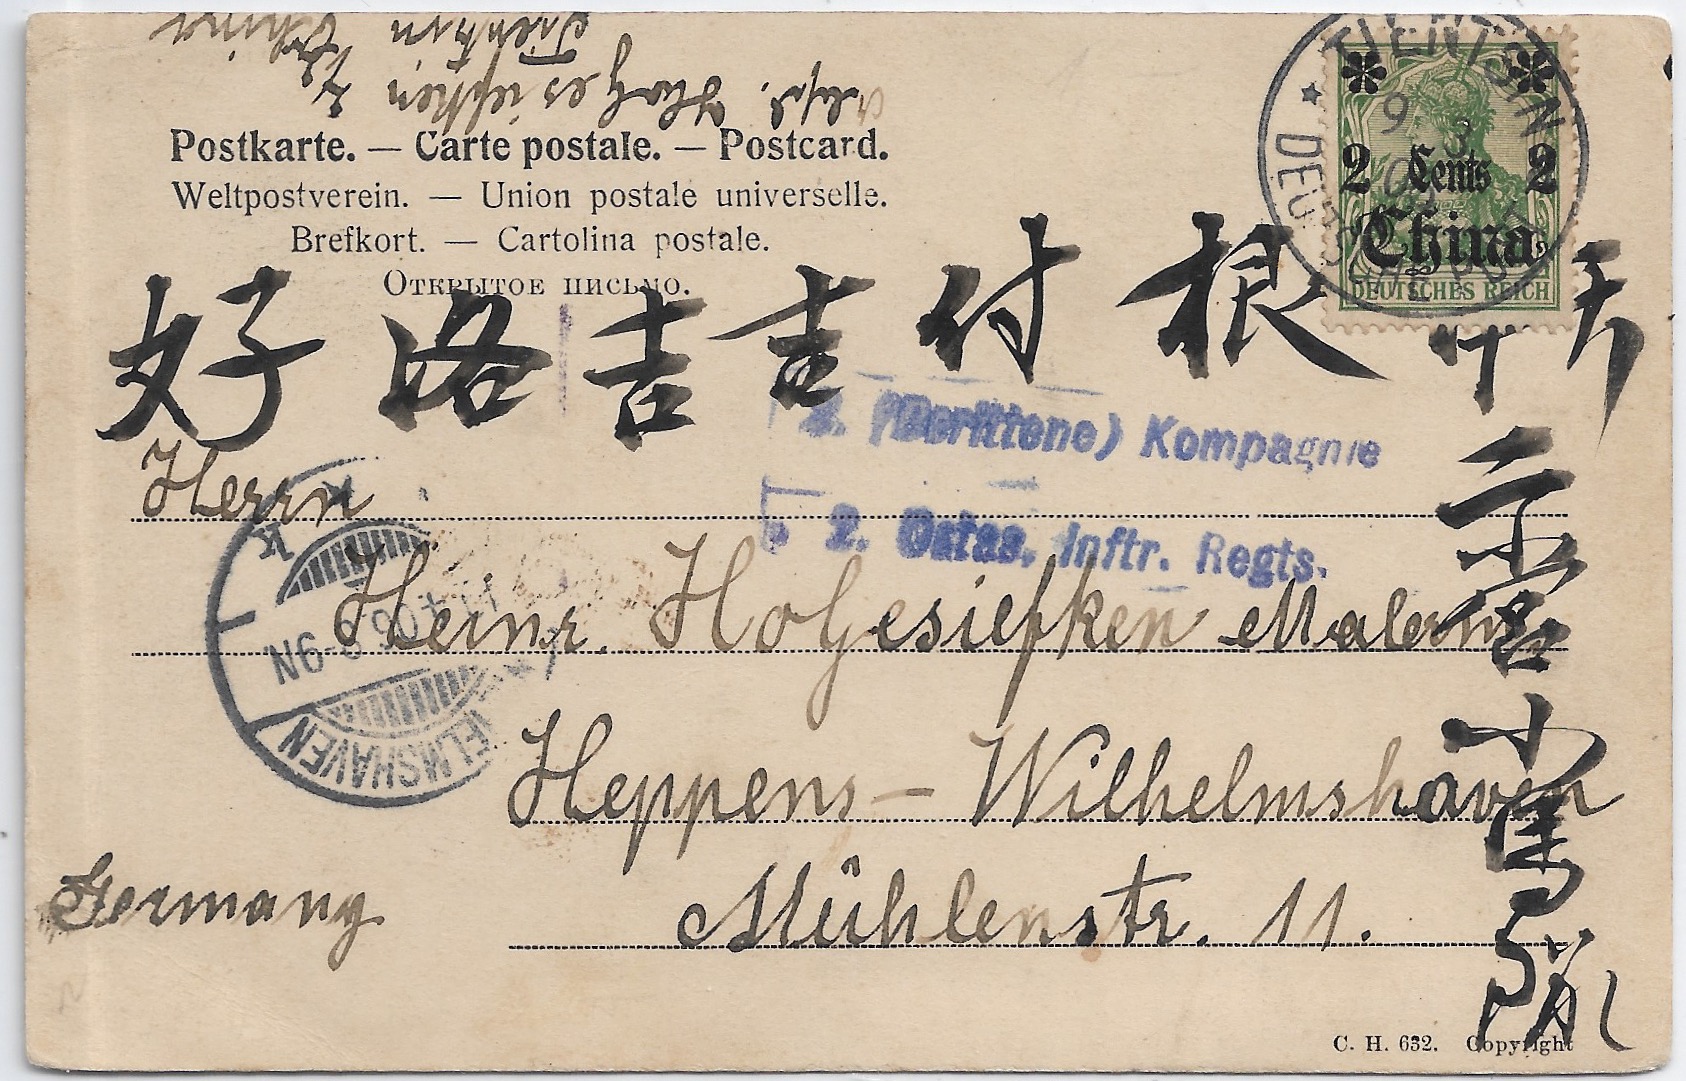 Absd. Holzesiefken Z
Tientsin China
Postkarte. — Carte postale. — Postcard.
Weltpostverein. — Union postale universelle.
Brefkort. — Cartolina postale.
Открытое письмо.
TIENTSIN
9 3
DEUTSCHE POST
2 Cents 2
China
DEUTSCHES REICH
好洛吉吉付根
天
二营
(Berittene) Kompagnie
2. Ostas. Inftr. Regts.
Herrn
Heinr. Holzesiefken Malerm
Heppens - Wilhelmshaven
Mühlenstr. 11.
Germany
WILHELMSHAVEN
6-9N
C. H. 632. Copyright